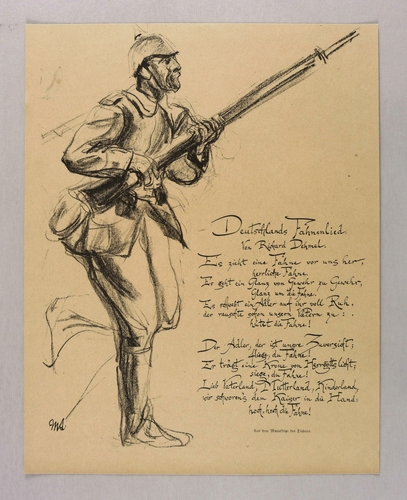 Deutschlands Fahnenlied
Von Richard Dehmel.
Es zieht eine Fahne vor uns her,
herrliche Fahne.
Er geht ein Glanz von Gewehr zu Gewehr,
Glanz um die Fahne.
Es schwebt ein Adler auf ihr voll Ruh,
der rauschte schon unsern Vätern zu:
hütet die Fahne!
Der Adler, der ist unsre Zuversicht;
fliege, du Fahne!
Er trägt eine Krone von Herrgotts Licht;
siege, du Fahne!
Lieb Vaterland, Mutterland, Kinderland,
wir schwören's dem Kaiser in die Hand:
hoch, hoch die Fahne!
Aus dem